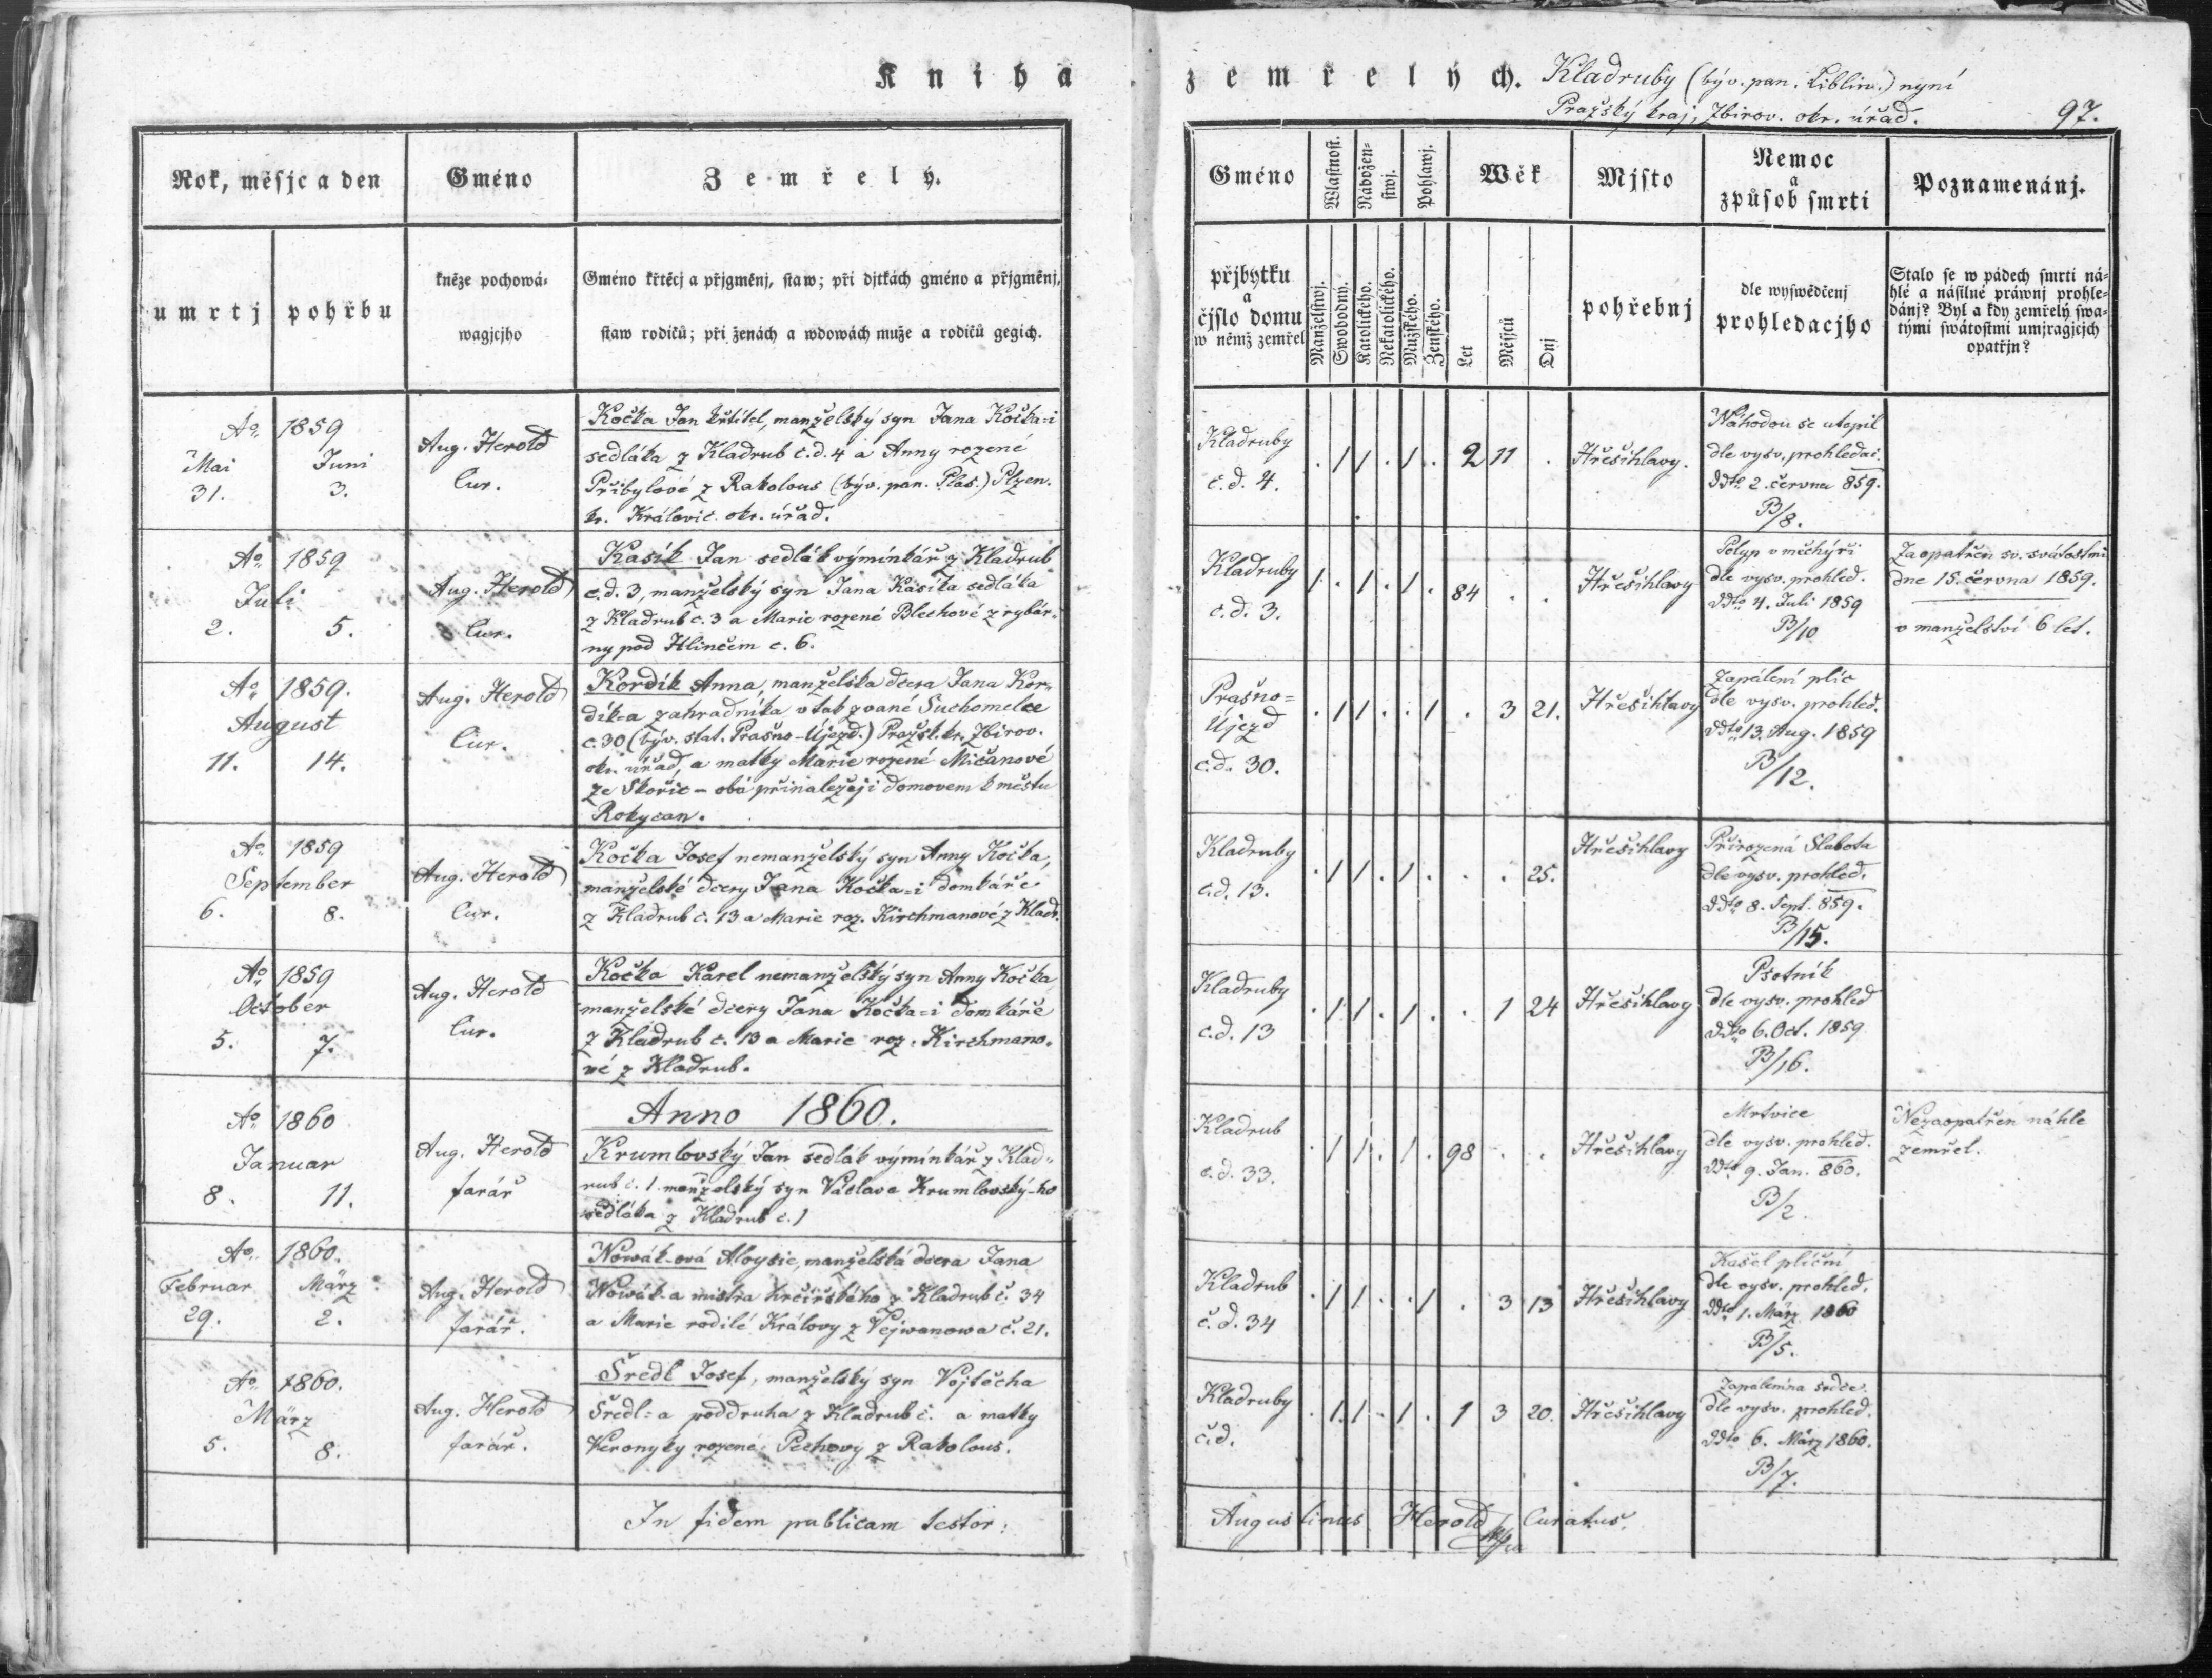 Kniha zemřelých. Kladruby (býv. pan. Liblin.) nyní
Pražský kraj, Zbirov. okr. úřad. 97.
Rok, měsjc a den
Gméno
Zemřelý.
umrtj
pohřbu
kněze pochowá-
wagjcjho
Gméno křtěcj a přjgměnj, staw; při djtkách gméno a přjgměnj,
staw rodičů; při ženách a wdowách muže a rodičů gegich.
Gméno
Wlastnost.
Nábožen-
stwj.
Pohlawj.
Wěk
Mjsto
Nemoc
a
způsob smrti
Poznamenánj.
přjbytku
a
čjslo domu
w němž zemřel
Manželstwj.
Swobodný.
Katolického.
Nekatolického.
Mužského.
Ženského.
Let
Měsjců
Dnj
pohřebnj
dle wyswědčenj
prohledacjho
Stalo se w pádech smrti ná-
hlé a násilné práwnj prohle-
dánj? Byl a kdy zemřelý swa-
tými swátostmi umjragjcjch
opatřjn?
Ao. 1859
Mai Juni
31. 3.
Aug. Herold
Cur.
Kočka Jan křtitel, manželský syn Jana Kočka-i
sedláka z Kladrub č.d. 4 a Anny rozené
Přibylové z Rakolous (býv. pan. Plas.) Plzen.
kr. Královic. okr. úřad.
Kladruby
č.d. 4.
. / / . / . 2 11 .
Hřešihlavy.
Náhodou se utopil
dle vysv. prohledač.
ddto 2. června 859.
B/8.
Ao. 1859
Juli
2. 5.
Aug. Herold
Cur.
Kasík Jan sedlák výminkář z Kladrub
č.d. 3, manželský syn Jana Kasíka sedláka
z Kladrub č. 3 a Marie rozené Blechové z rybár-
ny pod Hlinčem č. 6.
Kladruby
č.d. 3.
/ . / . / . 84 . .
Hřešihlavy
Polyp v měchýři
dle vysv. prohled.
ddto 4. Juli 1859
B/10
Zaopatřen sv. svátostmi
dne 15. června 1859.
v manželství 6 let.
Ao. 1859.
August
11. 14.
Aug. Herold
Cur.
Kordík Anna, manželska dcera Jana Kor-
díka zahradníka v tak zvané Suchomelce
č. 30 (býv. stat. Prašno-Újezd.) Pražsk. kr. Zbirov.
okr. úřad, a matky Marie rozené Mičanové
ze Skořic - obá přinaležejí domovem k městu
Rokycan.
Prašno-
Újezd
č.d. 30.
. / / . . / . 3 21.
Hřešihlavy
Zapálení plic
dle vysv. prohled.
ddto 13. Aug. 1859
B/12.
Ao. 1859
September
6. 8.
Aug. Herold
Cur.
Kočka Josef nemanželský syn Anny Kočka,
manželské dcery Jana Kočka-i domkáře
z Kladrub č. 13 a Marie roz. Kirchmanové z Kladr.
Kladruby
č.d. 13.
. / / . / . . . 25.
Hřešihlavy
Přirozená Slabota
dle vysv. prohled.
ddto 8. Sept. 859.
B/15.
Ao. 1859
October
5. 7.
Aug. Herold
Cur.
Kočka Karel nemanželský syn Anny Kočka
manželské dcery Jana Kočka-i domkáře
z Kladrub č. 13 a Marie roz. Kirchmano-
vé z Kladrub.
Kladruby
č.d. 13
. / / . / . . 1 24
Hřešihlavy
Psotník
dle vysv. prohled
ddto 6. Oct. 1859
B/16.
Anno 1860.
Ao. 1860
Januar
8. 11.
Aug. Herold
farář
Krumlovský Jan sedlák výmínkář z Klad-
rub č. 1. manželský syn Václava Krumlovský-ho
sedláka z Kladrub č. 1
Kladrub
č.d. 33.
. / / . / . 98 . .
Hřešihlavy
Mrtvice
dle vysv. prohled.
ddto 9. Jan. 860.
B/2.
Nezaopatřen náhle
zemřel.
Ao. 1860.
Februar März
29. 2.
Aug. Herold
farář.
Nowák-ová Aloysie, manželská dcera Jana
Nowák-a mistra krčířského z Kladrub č. 34
a Marie rodilé Královy z Vejwanowa č. 21.
Kladrub
č.d. 34
. / / . . / . 3 13
Hřešihlavy
Kašel plíční
dle vysv. prohled.
ddto 1. März 1860
B/5.
Ao. 1860.
März
5. 8.
Aug. Herold
farář.
Šredl Josef, manželský syn Vojtěcha
Šredl-a poddruha z Kladrub č. a matky
Veronyky rozené Pechovy z Rakolous.
Kladruby
č.d.
. / / . / . 1 3 20.
Hřešihlavy
Zapálenina srdce.
dle vysv. prohled.
ddto 6. März 1860.
B/7.
In fidem publicam testor:
Augustinus Herold Curatus.